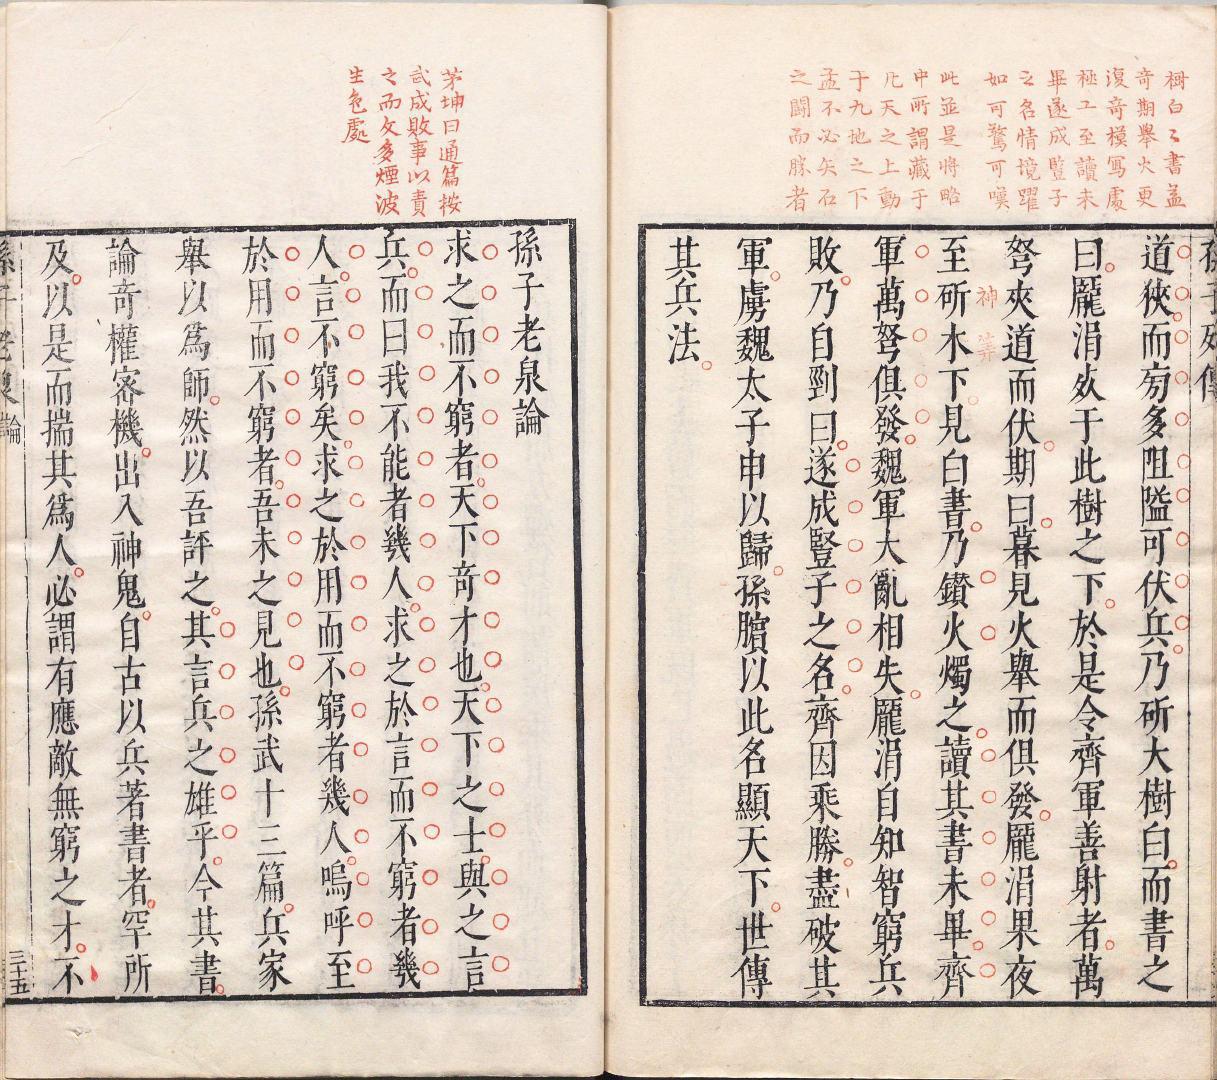 樹白之書益
奇期舉火更
復奇模寫處
極工至讀未
畢遂成豎子
之名情境躍
如可驚可嘆
此並是將略
中所謂藏于
九天之上動
于九地之下
孟不必矢石
之鬪而勝者
孫子列傳
道狹而㫄多阻隘可伏兵乃斫大樹白而書之
曰龐涓死于此樹之下於是令齊軍善射者萬
弩夾道而伏期曰暮見火舉而俱發龐涓果夜
至斫木下見白書乃鑽火燭之讀其書未畢齊
神筭
軍萬弩俱發魏軍大亂相失龐涓自知智窮兵
敗乃自剄曰遂成豎子之名齊因乘勝盡破其
軍虜魏太子申以歸孫臏以此名顯天下世傳
其兵法
茅坤曰通篇按
武成敗事以責
之而文多煙波
生色處
孫子老泉論
求之而不窮者天下奇才也天下之士與之言
兵而曰我不能者幾人求之於言而不窮者幾
人言不窮矣求之於用而不窮者幾人嗚呼至
於用而不窮者吾未之見也孫武十三篇兵家
舉以爲師然以吾評之其言兵之雄乎今其書
論奇權密機出入神鬼自古以兵著書者罕所
及以是而揣其爲人必謂有應敵無窮之才不
論
三十五